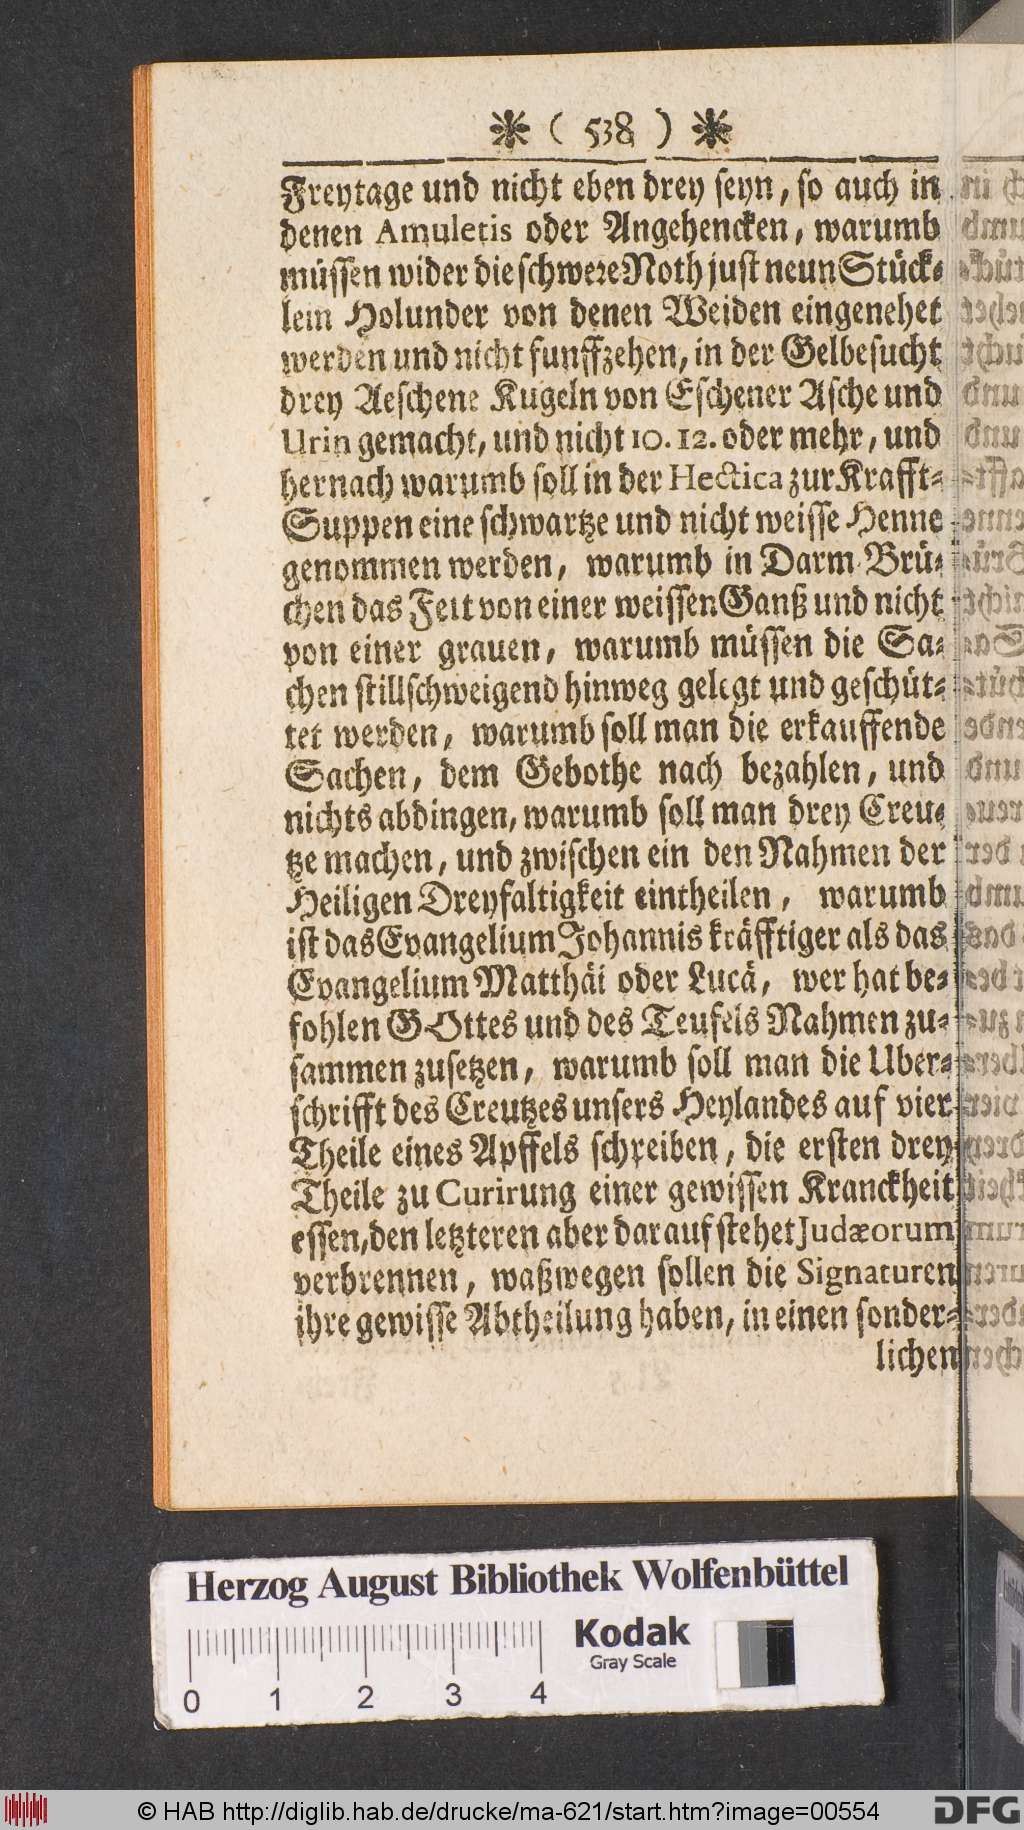 ❋ ( 538 ) ❋
Freytage und nicht eben drey seyn, so auch in
denen Amuletis oder Angehencken, warumb
müssen wider die schwere Noth just neun Stück-
lein Holunder von denen Weiden eingenehet
werden und nicht funffzehen, in der Gelbesucht
drey Aeschene Kugeln von Eschener Asche und
Urin gemacht, und nicht 10. 12. oder mehr, und
hernach warumb soll in der Hectica zur Krafft-
Suppen eine schwartze und nicht weisse Henne
genommen werden, warumb in Darm-Brü-
chen das Fett von einer weissen Ganß und nicht
von einer grauen, warumb müssen die Sa-
chen stillschweigend hinweg gelegt und geschüt-
tet werden, warumb soll man die erkauffende
Sachen, dem Gebothe nach bezahlen, und
nichts abdingen, warumb soll man drey Creu-
tze machen, und zwischen ein den Nahmen der
Heiligen Dreyfaltigkeit eintheilen, warumb
ist das Evangelium Johannis kräfftiger als das
Evangelium Matthäi oder Lucä, wer hat be-
fohlen GOttes und des Teufels Nahmen zu-
sammen zusetzen, warumb soll man die Uber-
schrifft des Creutzes unsers Heylandes auf vier
Theile eines Apffels schreiben, die ersten drey
Theile zu Curirung einer gewissen Kranckheit
essen, den letzteren aber darauf stehet Judæorum
verbrennen, waßwegen sollen die Signaturen
ihre gewisse Abtheilung haben, in einen sonder-
lichen
Herzog August Bibliothek Wolfenbüttel
Kodak
Gray Scale
0 1 2 3 4
© HAB http://diglib.hab.de/drucke/ma-621/start.htm?image=00554
DFG